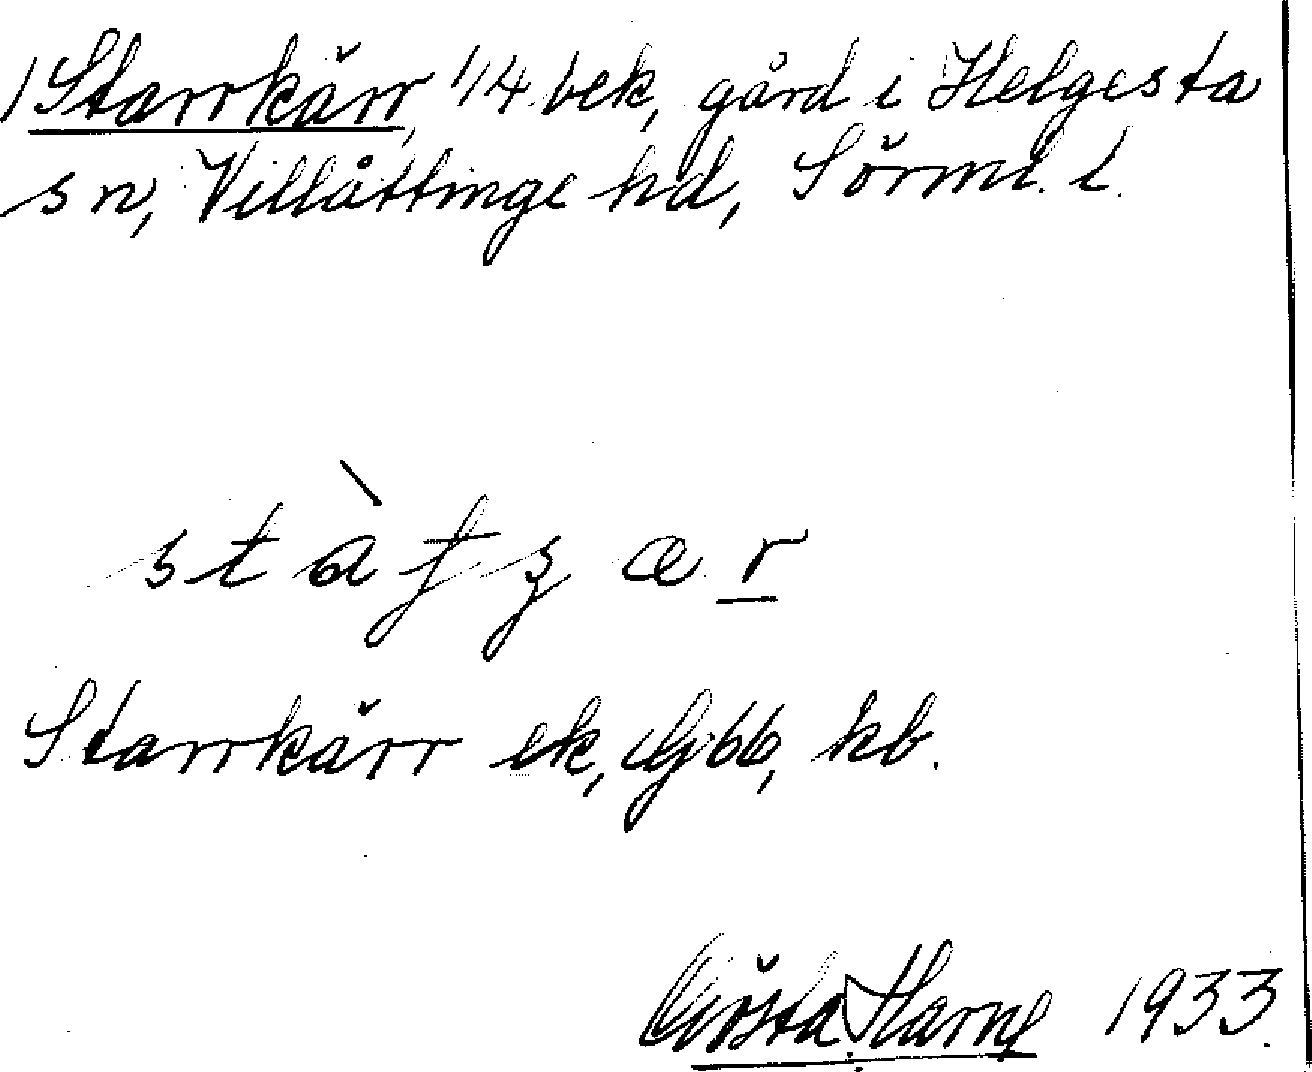 1 Starrkärr, 1/4 bek, gård i Helgesta
sn, Villåttinge hd, Sörml. l.
Starrkärr ek, Gjbb, kb.
Gösta Harne 1933.